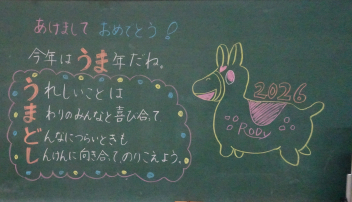 あけまして おめでとう!
今年はうま年だね。
うれしいことは
まわりのみんなと喜び合って
どんなにつらいときも
しんけんに向き合ってのりこえよう。
2026
RODY